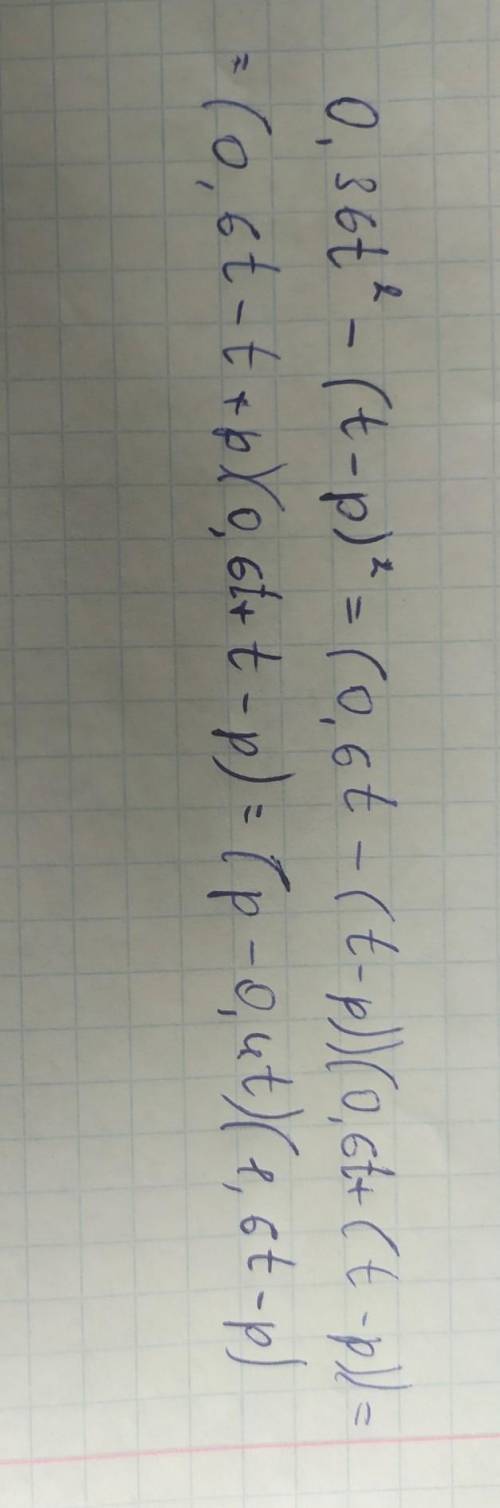 0,36t² - (t-p)² = (0,6t - (t-p))(0,6t+(t-p)) =
= (0,6t - t + p)(0,6t + t - p) = (p - 0,4t)(1,6t - p)